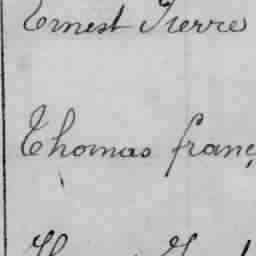 Ernest Pierre
Thomas franç